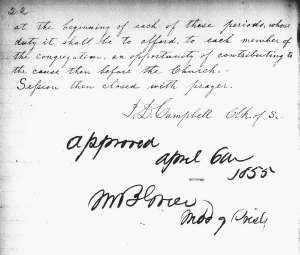 22
at the beginning of each of these periods, whose
duty it shall be to afford, to each member of
the congregation, an opportunity of contributing to
the cause then before the Church.
Session then closed with prayer.
Campbell Clk. of S.
Approved
April
1855
Mod